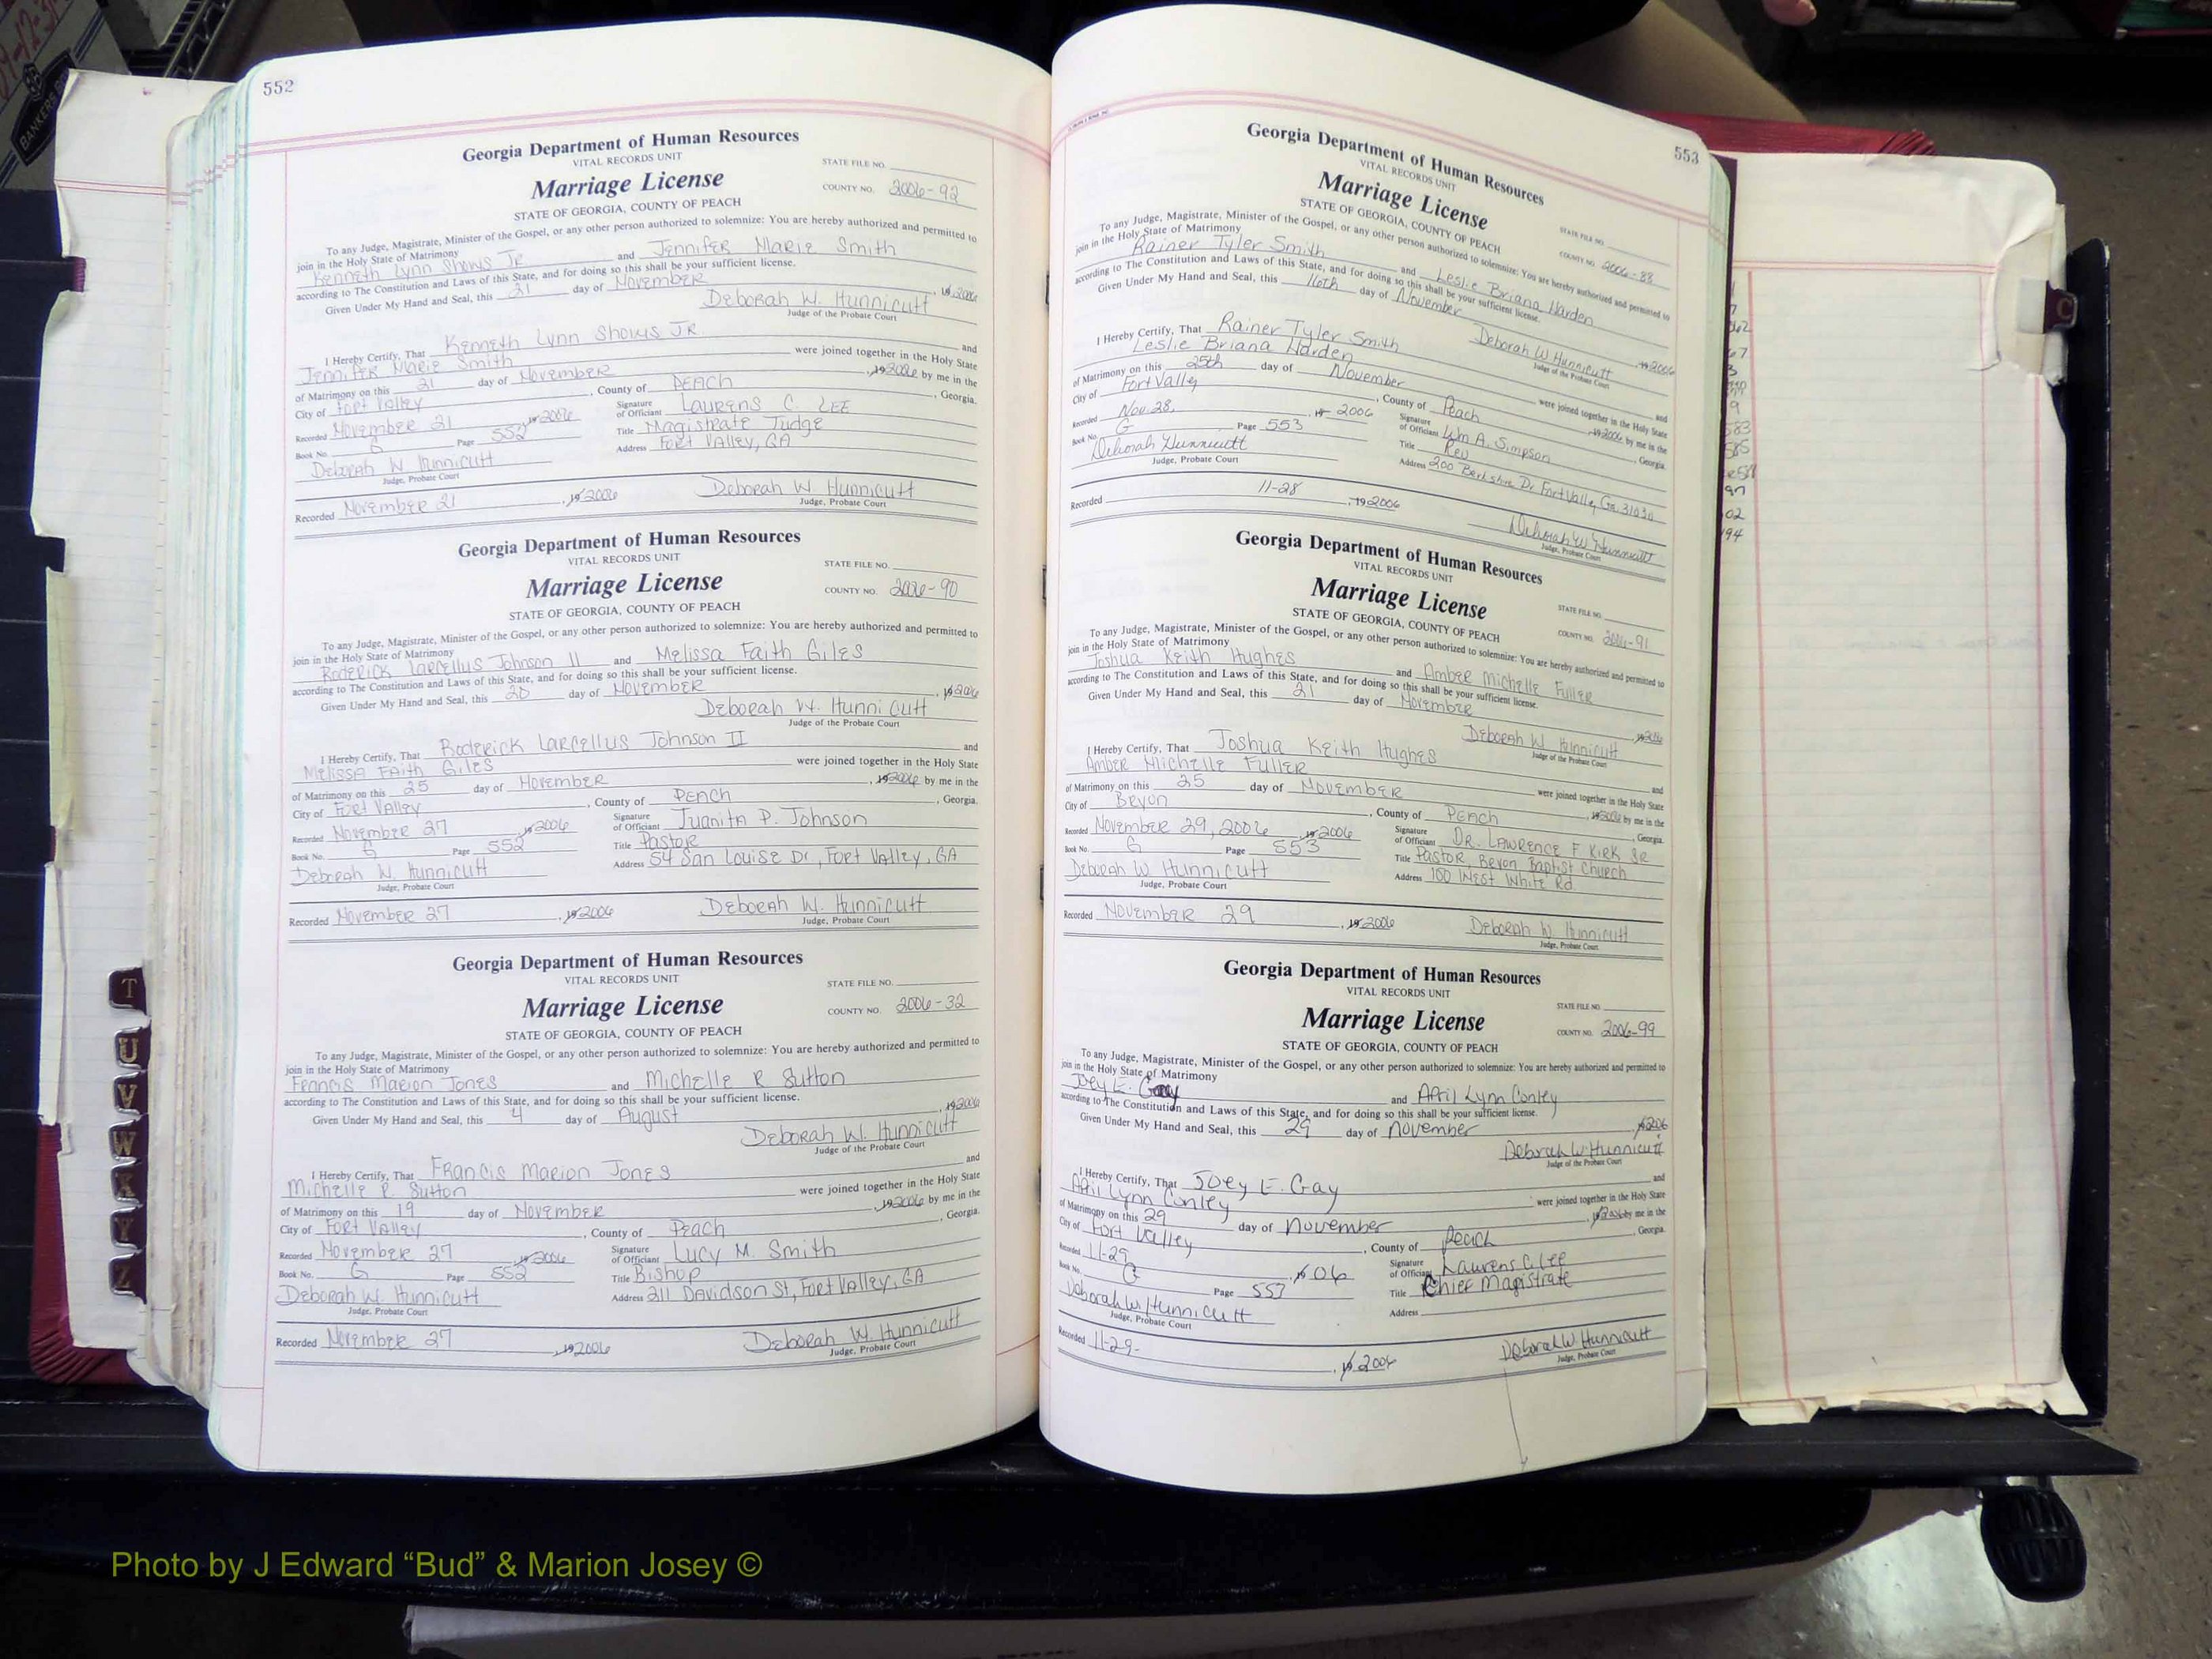 552
Georgia Department of Human Resources
VITAL RECORDS UNIT
STATE FILE NO.
Marriage License
COUNTY NO. 2006-92
STATE OF GEORGIA, COUNTY OF PEACH
To any Judge, Magistrate, Minister of the Gospel, or any other person authorized to solemnize: You are hereby authorized and permitted to
join in the Holy State of Matrimony
Kenneth Lynn Shows JR and Jennifer Marie Smith
according to The Constitution and Laws of this State, and for doing so this shall be your sufficient license.
Given Under My Hand and Seal, this 21 day of November, 19 2006
Deborah W. Hunnicutt
Judge of the Probate Court
I Hereby Certify, That Kenneth Lynn Shows JR. and
Jennifer Marie Smith were joined together in the Holy State
of Matrimony on this 21 day of November, 19 2006 by me in the
City of Fort Valley, County of PEACH, Georgia.
Recorded November 21, 19 2006 Signature of Officiant Laurens C. LEE
Book No. G Page 552 Title Magistrate Judge
Deborah W Hunnicutt Address Fort Valley, GA
Judge, Probate Court
Recorded November 21, 19 2006 Deborah W. Hunnicutt
Judge, Probate Court
Georgia Department of Human Resources
VITAL RECORDS UNIT
STATE FILE NO.
Marriage License
COUNTY NO. 2006-90
STATE OF GEORGIA, COUNTY OF PEACH
To any Judge, Magistrate, Minister of the Gospel, or any other person authorized to solemnize: You are hereby authorized and permitted to
join in the Holy State of Matrimony
Roderick Larcellus Johnson II and Melissa Faith Giles
according to The Constitution and Laws of this State, and for doing so this shall be your sufficient license.
Given Under My Hand and Seal, this 20 day of November, 19 2006
Deborah W. Hunnicutt
Judge of the Probate Court
I Hereby Certify, That Roderick Larcellus Johnson II and
Melissa Faith Giles were joined together in the Holy State
of Matrimony on this 25 day of November, 19 2006 by me in the
City of Fort Valley, County of PEACH, Georgia.
Recorded November 27, 19 2006 Signature of Officiant Juanita P. Johnson
Book No. G Page 552 Title Pastor
Deborah W. Hunnicutt Address 54 San Louise Dr, Fort Valley, GA
Judge, Probate Court
Recorded November 27, 19 2006 Deborah W. Hunnicutt
Judge, Probate Court
Georgia Department of Human Resources
VITAL RECORDS UNIT
STATE FILE NO.
Marriage License
COUNTY NO. 2006-32
STATE OF GEORGIA, COUNTY OF PEACH
To any Judge, Magistrate, Minister of the Gospel, or any other person authorized to solemnize: You are hereby authorized and permitted to
join in the Holy State of Matrimony
Francis Marion Jones and Michelle R Sutton
according to The Constitution and Laws of this State, and for doing so this shall be your sufficient license.
Given Under My Hand and Seal, this 4 day of August, 19 2006
Deborah W. Hunnicutt
Judge of the Probate Court
I Hereby Certify, That Francis Marion Jones and
Michelle R. Sutton were joined together in the Holy State
of Matrimony on this 19 day of November, 19 2006 by me in the
City of Fort Valley, County of Peach, Georgia.
Recorded November 27, 19 2006 Signature of Officiant Lucy M. Smith
Book No. G Page 552 Title Bishop
Deborah W. Hunnicutt Address 211 Davidson St, Fort Valley, GA
Judge, Probate Court
Recorded November 27, 19 2006 Deborah W. Hunnicutt
Judge, Probate Court
553
Georgia Department of Human Resources
VITAL RECORDS UNIT
Marriage License
STATE FILE NO.
STATE OF GEORGIA, COUNTY OF PEACH
COUNTY NO. 2006-88
To any Judge, Magistrate, Minister of the Gospel, or any other person authorized to solemnize: You are hereby authorized and permitted to
join in the Holy State of Matrimony
Rainer Tyler Smith and Leslie Briana Harden
according to The Constitution and Laws of this State, and for doing so this shall be your sufficient license.
Given Under My Hand and Seal, this 16th day of November, 19 2006
Deborah W Hunnicutt
Judge of the Probate Court
I Hereby Certify, That Rainer Tyler Smith and
Leslie Briana Harden were joined together in the Holy State
of Matrimony on this 25th day of November, 19 2006 by me in the
City of Fort Valley, County of Peach, Georgia.
Recorded Nov. 28, 19 2006 Signature of Officiant Wm A. Simpson
Book No. G Page 553 Title Rev
Deborah Hunnicutt Address 200 Berkshire Dr Fort Valley Ga. 31030
Judge, Probate Court
Recorded 11-28, 19 2006 Deborah W Hunnicutt
Judge, Probate Court
Georgia Department of Human Resources
VITAL RECORDS UNIT
Marriage License
STATE FILE NO.
STATE OF GEORGIA, COUNTY OF PEACH
COUNTY NO. 2006-91
To any Judge, Magistrate, Minister of the Gospel, or any other person authorized to solemnize: You are hereby authorized and permitted to
join in the Holy State of Matrimony
Joshua Keith Hughes and Amber Michelle Fuller
according to The Constitution and Laws of this State, and for doing so this shall be your sufficient license.
Given Under My Hand and Seal, this 21 day of November 19 2006
Deborah W. Hunnicutt
Judge of the Probate Court
I Hereby Certify, That Joshua Keith Hughes and
Amber Michelle Fuller were joined together in the Holy State
of Matrimony on this 25 day of November, 19 2006 by me in the
City of Beyon, County of Peach, Georgia.
Recorded November 29, 2006, 19 2006 Signature of Officiant DR. Lawrence F Kirk SR
Book No. G Page 553 Title Pastor, Beyon Baptist Church
Deborah W Hunnicutt Address 100 West White Rd.
Judge, Probate Court
Recorded November 29, 19 2006 Deborah W. Hunnicutt
Judge, Probate Court
Georgia Department of Human Resources
VITAL RECORDS UNIT
STATE FILE NO.
Marriage License
COUNTY NO. 2006-99
STATE OF GEORGIA, COUNTY OF PEACH
To any Judge, Magistrate, Minister of the Gospel, or any other person authorized to solemnize: You are hereby authorized and permitted to
join in the Holy State of Matrimony
Joey E. Gay and April Lynn Conley
according to The Constitution and Laws of this State, and for doing so this shall be your sufficient license.
Given Under My Hand and Seal, this 29 day of November 19 2006
Deborah W. Hunnicutt
Judge of the Probate Court
I Hereby Certify, That Joey E. Gay and
April Lynn Conley were joined together in the Holy State
of Matrimony on this 29 day of November, 19 2006 by me in the
City of Fort Valley, County of Peach, Georgia.
Recorded 11-29, 19 06 Signature of Officiant Laurens C Lee
Book No. G Page 553 Title Chief Magistrate
Deborah W. Hunnicutt Address
Judge, Probate Court
Recorded 11-29-, 19 2006 Deborah W. Hunnicutt
Judge, Probate Court
T
U
V
W
X
Y
Z
C
BANKERS
583
585
02
94
Photo by J Edward “Bud” & Marion Josey ©